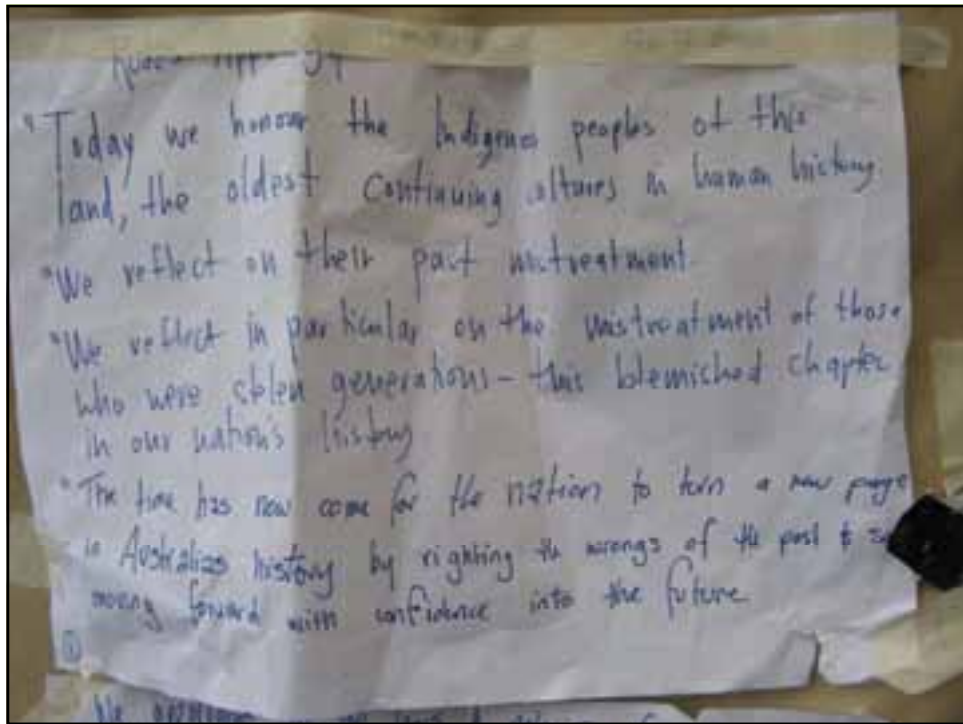 "Today we honour the Indigenes peoples of this
land, the oldest continuing cultures in human history.
"We reflect on their past mistreatment
"We reflect in particular on the mistreatment of those
who were stolen generations - this blemished chapter
in our nation's history
"The time has now come for the nation to turn a new page
in Australias history by righting the wrongs of the past & so
moving forward with confidence into the future
1
We